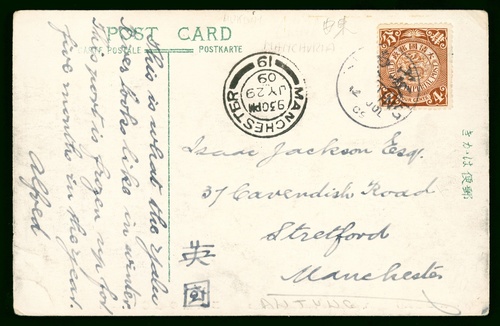 POST CARD
CARTE POSTALE
POSTKARTE
This is what the Yalu
River looks like in winter.
This port is frozen up for
five months in the year.
Alfred
MANCHESTER
9.30PM
JY 29
09
19
JUL
きかは便郵
Isaac Jackson Esq.
37 Cavendish Road
Stretford
Manchester
英国